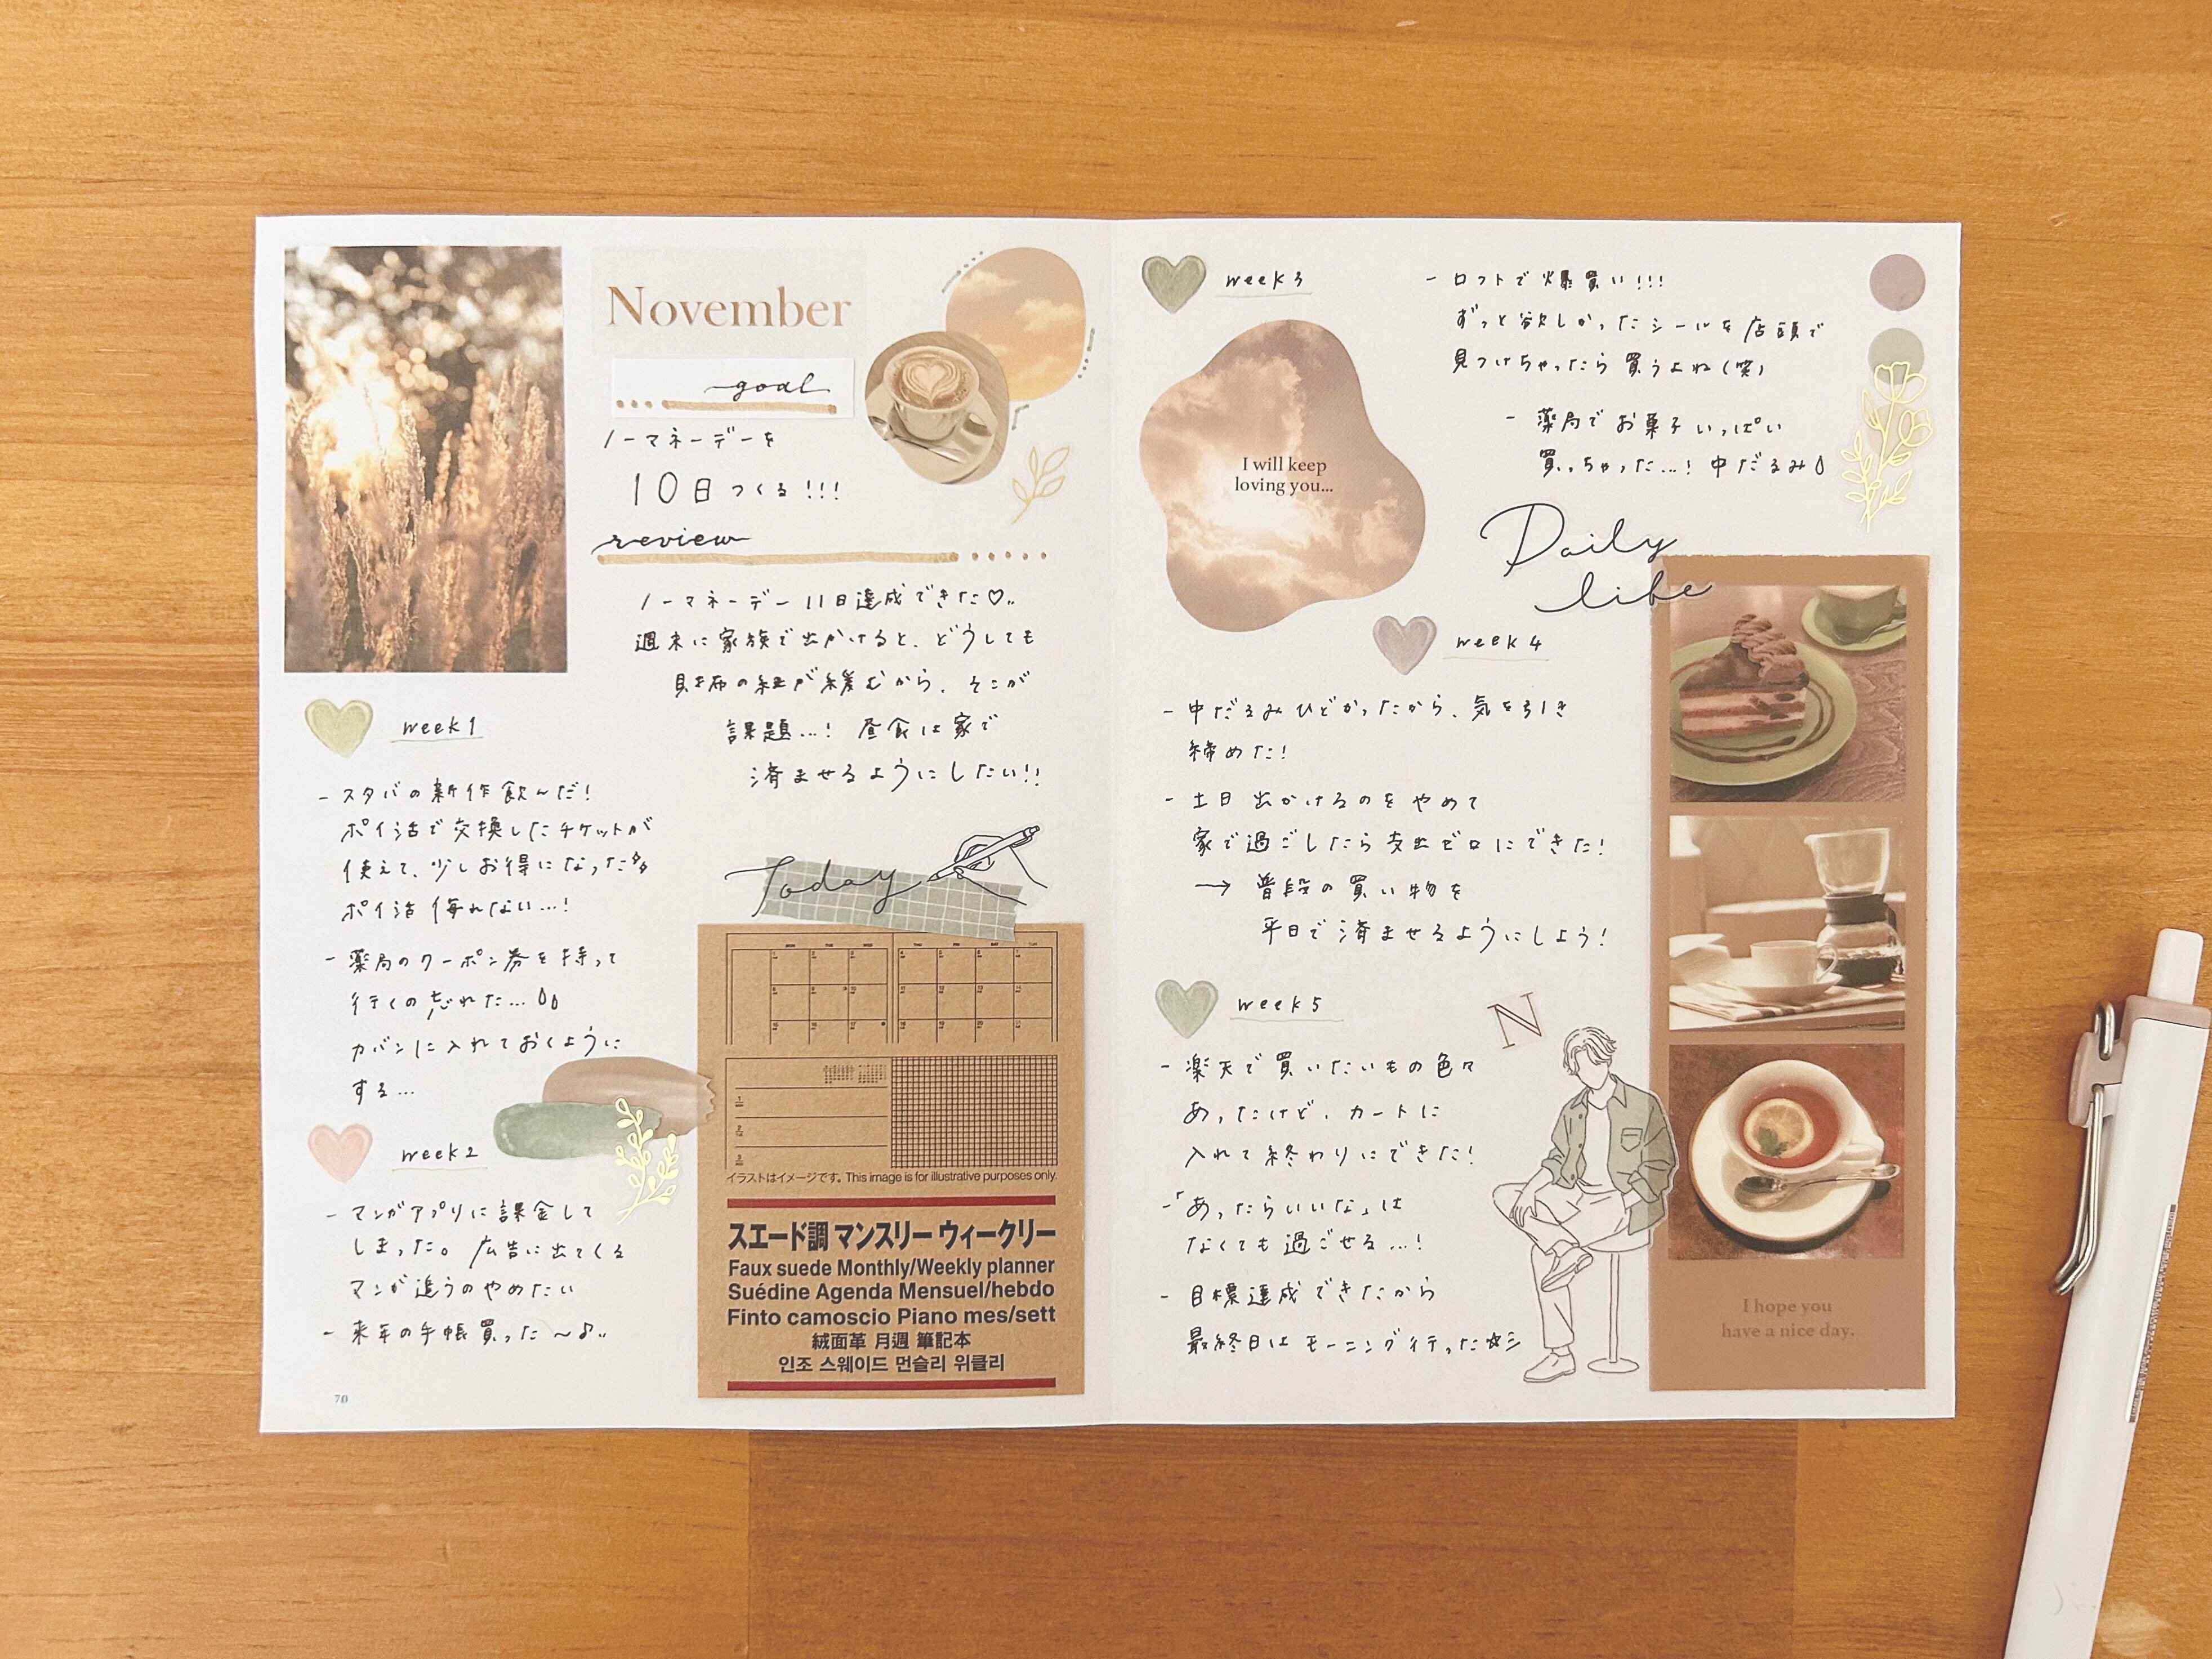 November
goal
ノーマネーデーを
10日つくる!!!
review
ノーマネーデー11日達成できた♡..
週末に家族で出かけると、どうしても
財布の紐が緩むから、そこが
課題...! 昼食は家で
済ませるようにしたい!!
week1
- スタバの新作飲んだ!
ポイ活で交換したチケットが
使えて、少しお得になった
ポイ活侮れない...!
- 薬局のクーポン券を持って
行くの忘れた...
カバンに入れておくように
する...
week2
- マンガアプリに課金して
しまった。広告に出てくる
マンガ追うのやめたい
- 来年の手帳買った〜♪..
70
Today
MON TUE WED THU FRI SAT SUN
イラストはイメージです。This image is for illustrative purposes only.
スエード調 マンスリー ウィークリー
Faux suede Monthly/Weekly planner
Suédine Agenda Mensuel/hebdo
Finto camoscio Piano mes/sett
絨面革 月週 筆記本
인조 스웨이드 먼슬리 위클리
week3
- ロフトで爆買い!!!
ずっと欲しかったシールを店頭で
見つけちゃったら買うよね(笑)
- 薬局でお菓子いっぱい
買っちゃった...! 中だるみ
I will keep
loving you...
Daily
life
week4
- 中だるみひどかったから、気を引き
締めた!
- 土日出かけるのをやめて
家で過ごしたら支出ゼロにできた!
→ 普段の買い物を
平日で済ませるようにしよう!
week5
N
- 楽天で買いたいもの色々
あったけど、カートに
入れて終わりにできた!
-「あったらいいな」は
なくても過ごせる...!
- 目標達成できたから
最終日はモーニング行った☆彡
I hope you
have a nice day.